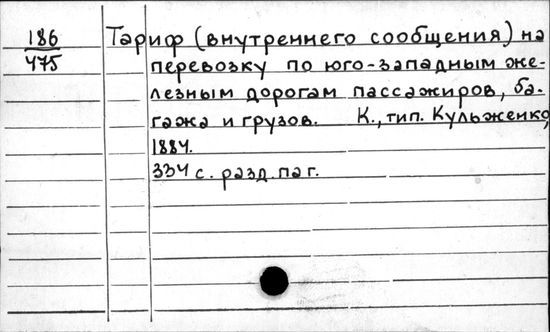 186
475
Тариф (внутреннего сообщения) на
перевозку по юго-западным же-
лезным дорогам пассажиров, ба-
гажа и грузов. К., тип. Кульженко,
1884.
334 с. разд. паг.